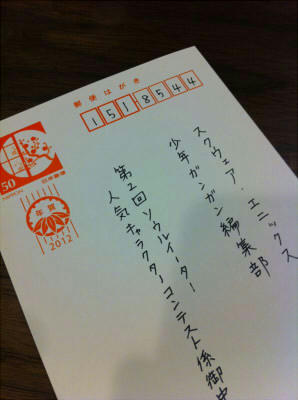 郵便はがき
151-8544
50
日本郵便
NIPPON
年賀
2012
スクウェア・エニックス
少年ガンガン編集部
第2回ソウルイーター
人気キャラクターコンテスト係御中